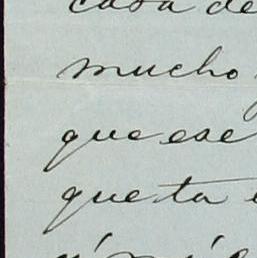 casa de
mucho
que ese
que ta